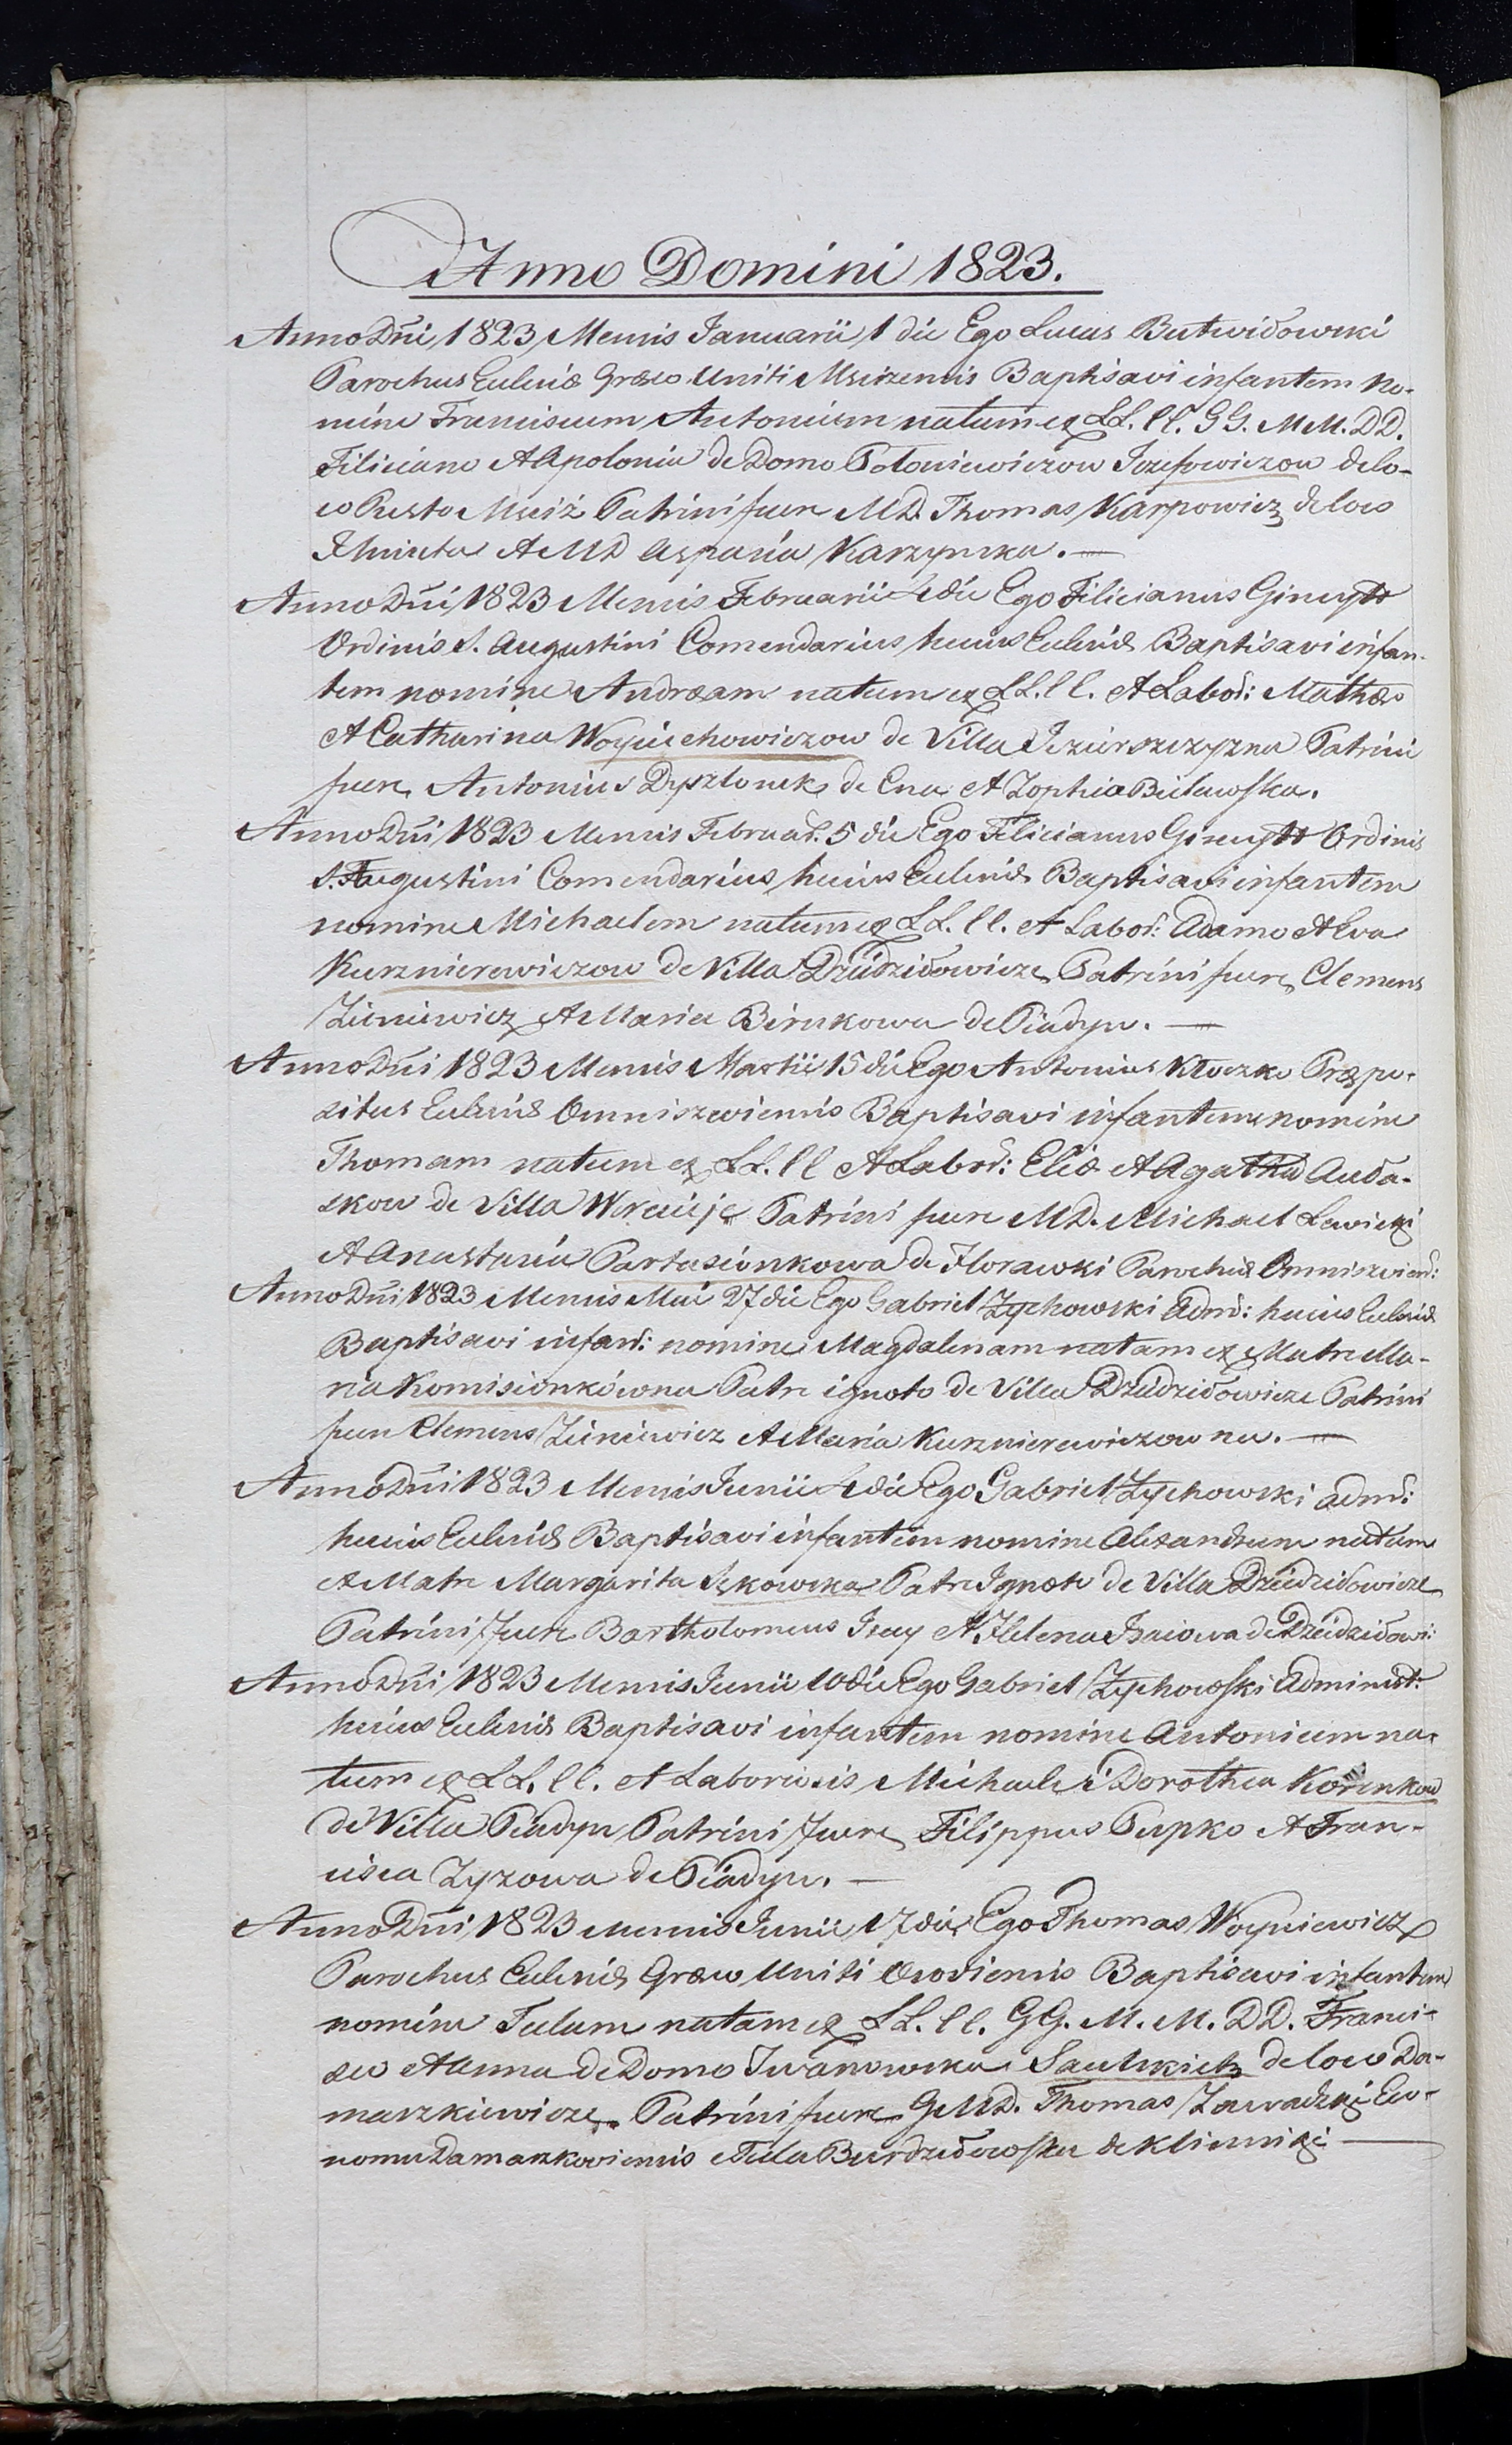 Anno Domini 1823.
Anno Dñi 1823 Mensis Januarii 1 die Ego Lucas Butwidowski
Parochus Eccleniæ Græco Uniti Mscizensis Baptisavi infantem no-
mine Franciscum Antonium natum ex LL. ll. GG. MM. DD.
Filiciano et Apolonia de Domo Potoniewiczow Jozefowiczow de lo-
co Pusto Msciż Patrini fuere MD. Thomas Karpowicz de loco
et MD Aspasia Karzynska. —
Anno Dñi 1823 Mensis Februarii 4 die Ego Filicianus Gineyt
Ordinis S. Augustini Comendarius huius Eccleniæ Baptisavi infan-
tem nomine Andream natum ex LL. ll. et Labor: Mathæo
et Catharina Woyciechowiczow de Villa Jezierszczyzna Patrini
fuere Antonius Dyszlonek de Ena et Zophia Bielawska.
Anno Dñi 1823 Mensis Februar. 5 die Ego Filicianus Gineyt Ordinis
S. Augustini Comendarius huius Eccleniæ Baptisavi infantem
nomine Michaelem natum ex LL. ll. et Labor: Adamo et Eva
Kurznierewiczow de Villa Dziedzidowicze Patrini fuere Clemens
Zieniewicz et Maria Birukowa de Piadyn. —
Anno Dñi 1823 Mensis Martii 15 die Ego Antonius Kłoczko Præpo-
situs Eccleniæ Omniszewiensis Baptisavi infantem nomine
Thomam natum ex LL. ll et Labor: Eliæ et Agatha Auda-
skow de Villa Patrini fuere MD. Michael Lewicki
et Anastasia Partasionkowa de Horawki Parochiæ Omniszewien:
Anno Dñi 1823 Mensis Maii 27 die Ego Gabriel Zychowski Adm: huius Eccleniæ
Baptisavi infan: nomine Magdalenam natam ex Matre Ma-
ria Komisionkówna Patre ignoto de Villa Dziedzidowicze Patrini
fuere Clemens Zieniewicz et Maria Kurznierewiczowna. —
Anno Dñi 1823 Mensis Junii 4 die Ego Gabriel Zychowski adm:
huius Eccleniæ Baptisavi infantem nomine Alexandrum natum
et Matre Margarita Sękowska Patre Ignoto de Villa Dziedzidowicze
Patrini fuere Bartholomeus Isay et Helena Isaiowa de Dziedzidowi:
Anno Dñi 1823 Mensis Junii 10 die Ego Gabriel Zychowski Administ:
huius Eccleniæ Baptisavi infantem nomine Antonium na-
tum ex LL. ll. et Laboriosis Michaele i Dorothea Korenkow
de Villa Piadyn Patrini fuere Filippus Pupko et Fran-
cisca Zyzowa de Piadyn. —
Anno Dñi 1823 Mensis Junii 17 die Ego Thomas Woyniewicz
Parochus Eccleniæ Græco Uniti Baptisavi infantem
nomine Teclam natam ex LL. ll. GG. M. M. DD. Franci-
sco et Anna de Domo Iwanowska Saulskich de loco Da-
maszkiewicze Patrini fuere GMD. Thomas Zawadzki Eco-
nomu Damaszkoviensis Tecla Burdzidowska de Klienniki —